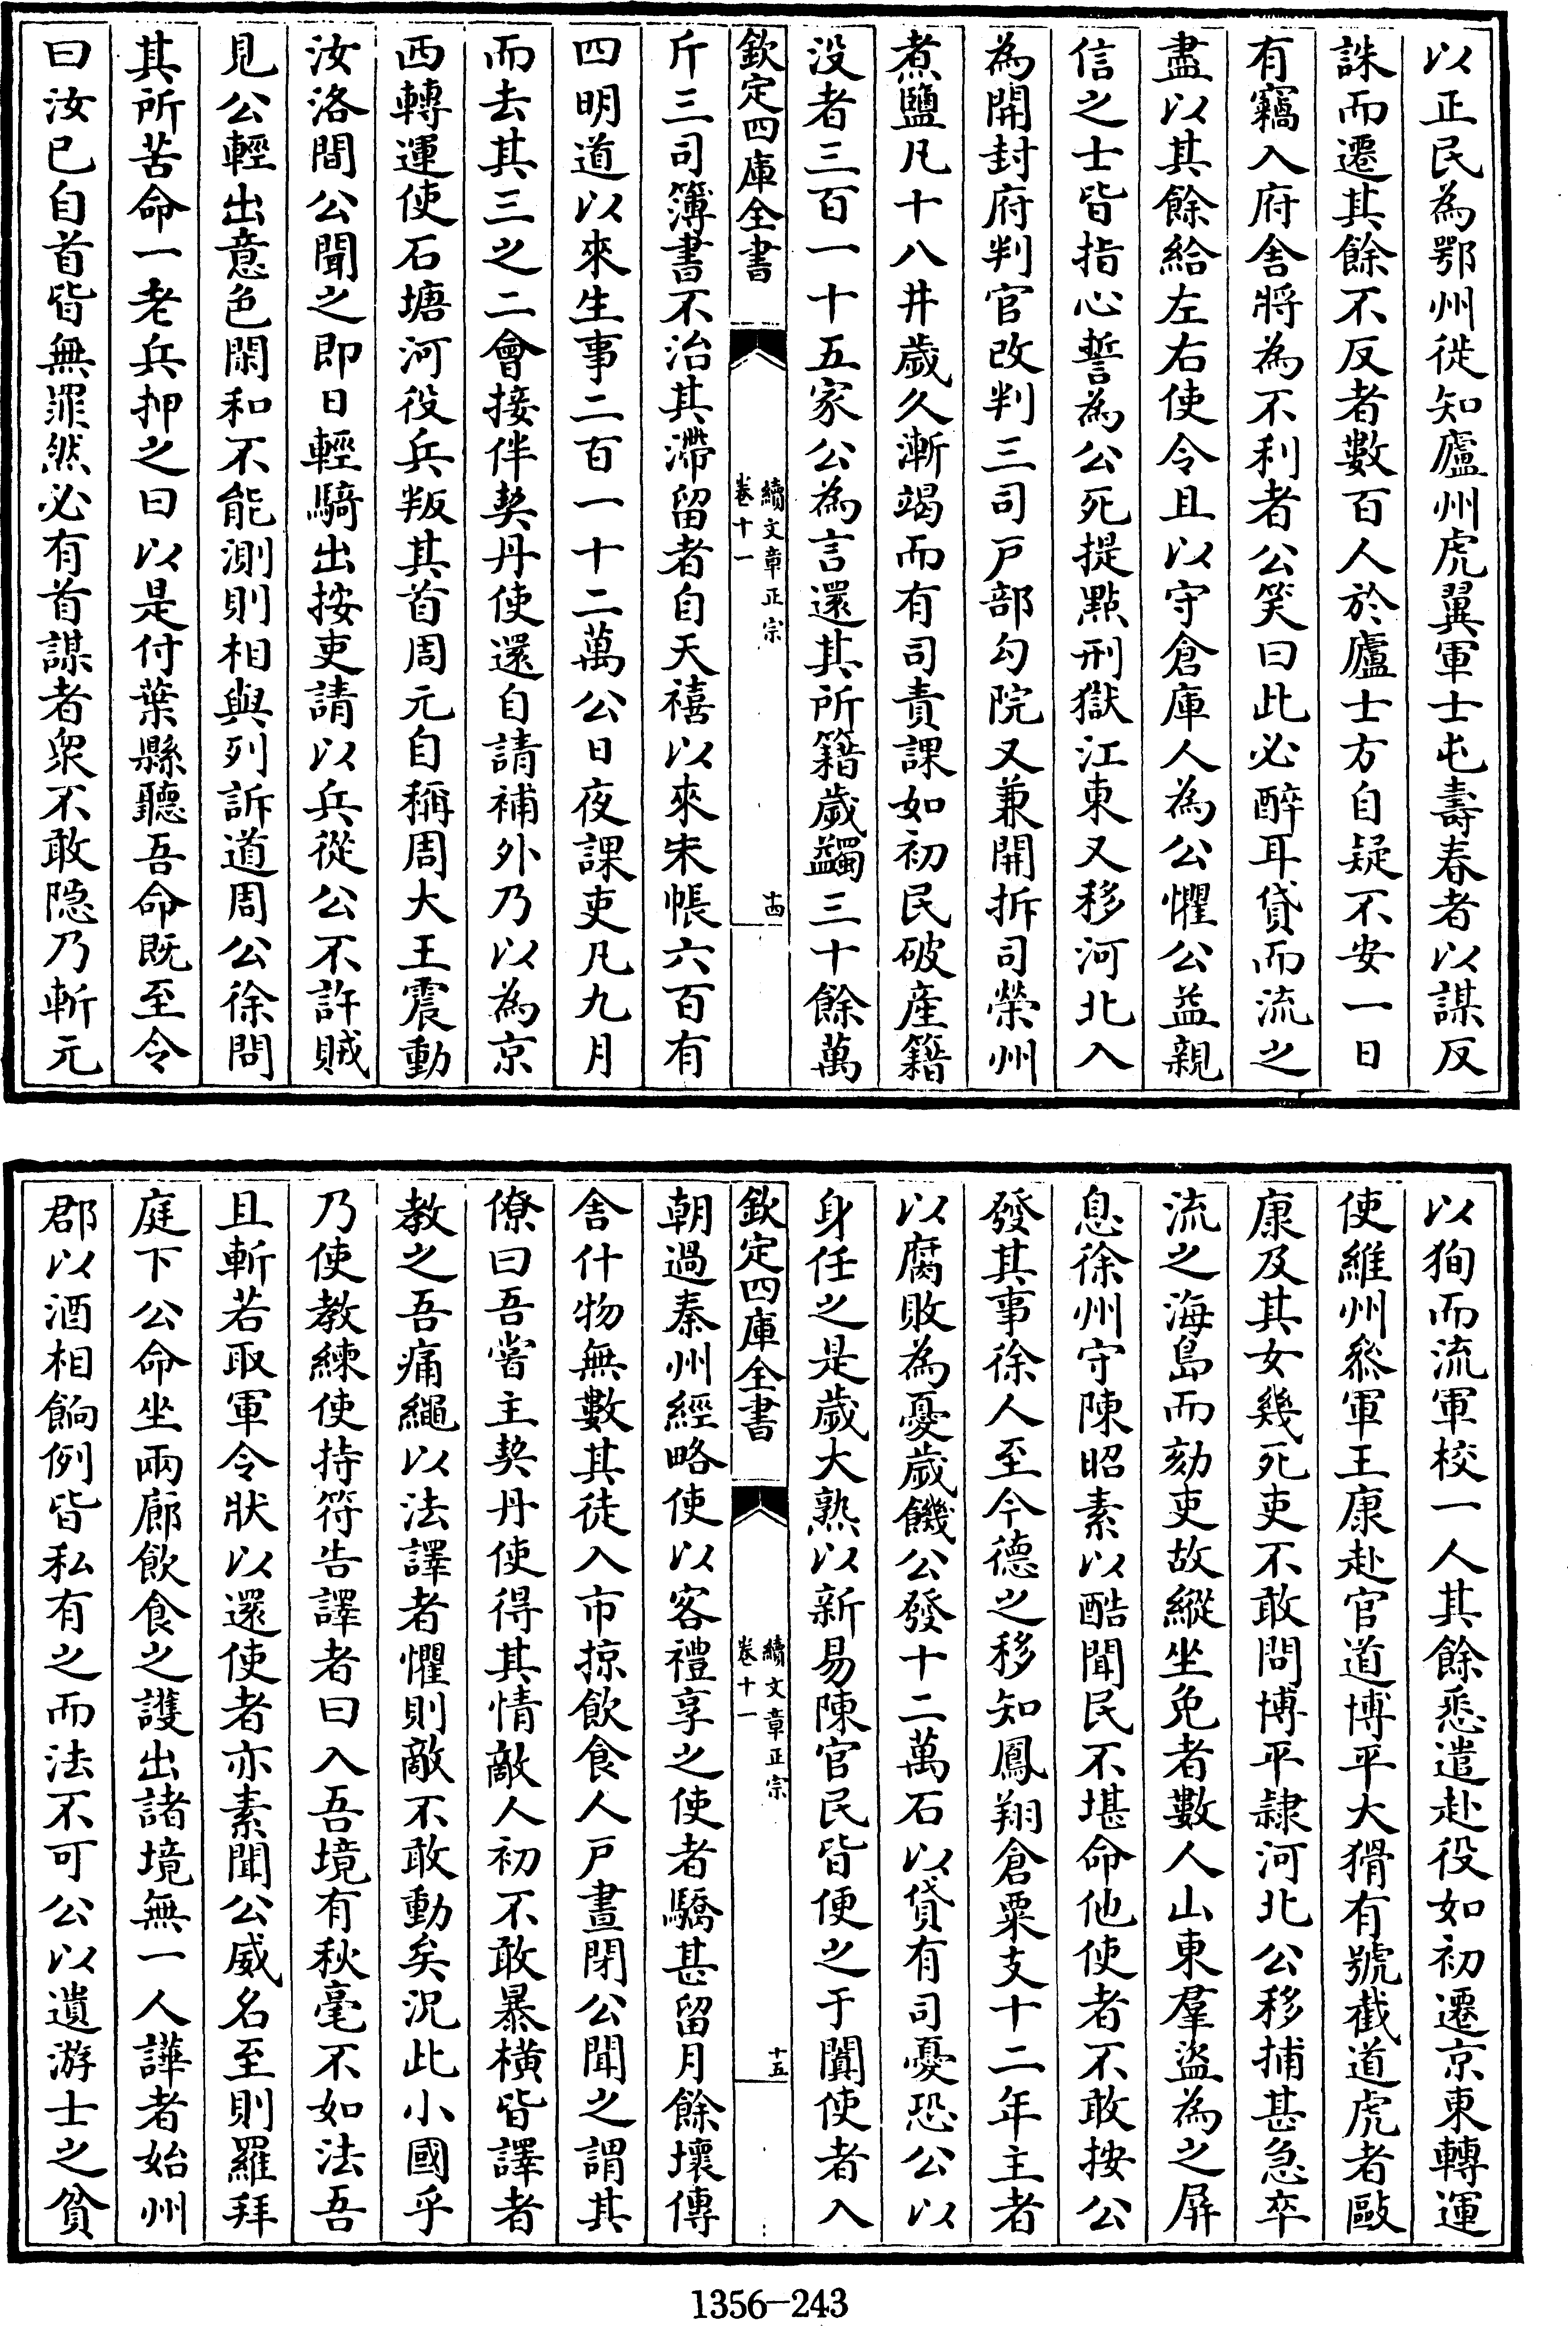 以正民為鄂州徙知廬州虎翼軍士屯壽春者以謀反
誅而遷其餘不反者數百人於廬士方自疑不安一日
有竊入府舍將為不利者公笑曰此必醉耳貸而流之
盡以其餘給左右使令且以守倉庫人為公懼公益親
信之士皆指心誓為公死提點刑獄江東又移河北入
為開封府判官改判三司户部勾院又兼開拆司榮州
煮鹽凡十八井歲久漸竭而有司責課如初民破產籍
没者三百一十五家公為言還其所籍歲蠲三十餘萬
欽定四庫全書
續文章正宗
卷十一
十四
斤三司簿書不治其滯留者自天禧以來朱帳六百有
四明道以來生事二百一十二萬公日夜課吏凡九月
而去其三之二會接伴契丹使還自請補外乃以為京
西轉運使石塘河役兵叛其首周元自稱周大王震動
汝洛間公聞之即日輕騎出按吏請以兵從公不許賊
見公輕出意色閑和不能測則相與列訴道周公徐問
其所苦命一老兵押之曰以是付葉縣聽吾命既至令
曰汝已自首皆無罪然必有首謀者衆不敢隐乃斬元
以狥而流軍校一人其餘悉遣赴役如初遷京東轉運
使維州叅軍王康赴官道博平大猾有號截道虎者毆
康及其女幾死吏不敢問博平隷河北公移捕甚急卒
流之海島而劾吏故縱坐免者數人山東羣盜為之屏
息徐州守陳昭素以酷聞民不堪命他使者不敢按公
發其事徐人至今德之移知鳳翔倉粟支十二年主者
以腐敗為憂歲饑公發十二萬石以貸有司憂恐公以
身任之是歲大熟以新易陳官民皆便之于闐使者入
欽定四庫全書
續文章正宗
卷十一
十五
朝過秦州經略使以客禮享之使者驕甚留月餘壞傳
舍什物無數其徒入市掠飲食人户晝閉公聞之謂其
僚曰吾嘗主契丹使得其情敵人初不敢暴横皆譯者
教之吾痛繩以法譯者懼則敵不敢動矣況此小國乎
乃使教練使持符告譯者曰入吾境有秋毫不如法吾
且斬若取軍令狀以還使者亦素聞公威名至則羅拜
庭下公命坐兩廊飲食之護出諸境無一人譁者始州
郡以酒相餉例皆私有之而法不可公以遺游士之貧
1356-243